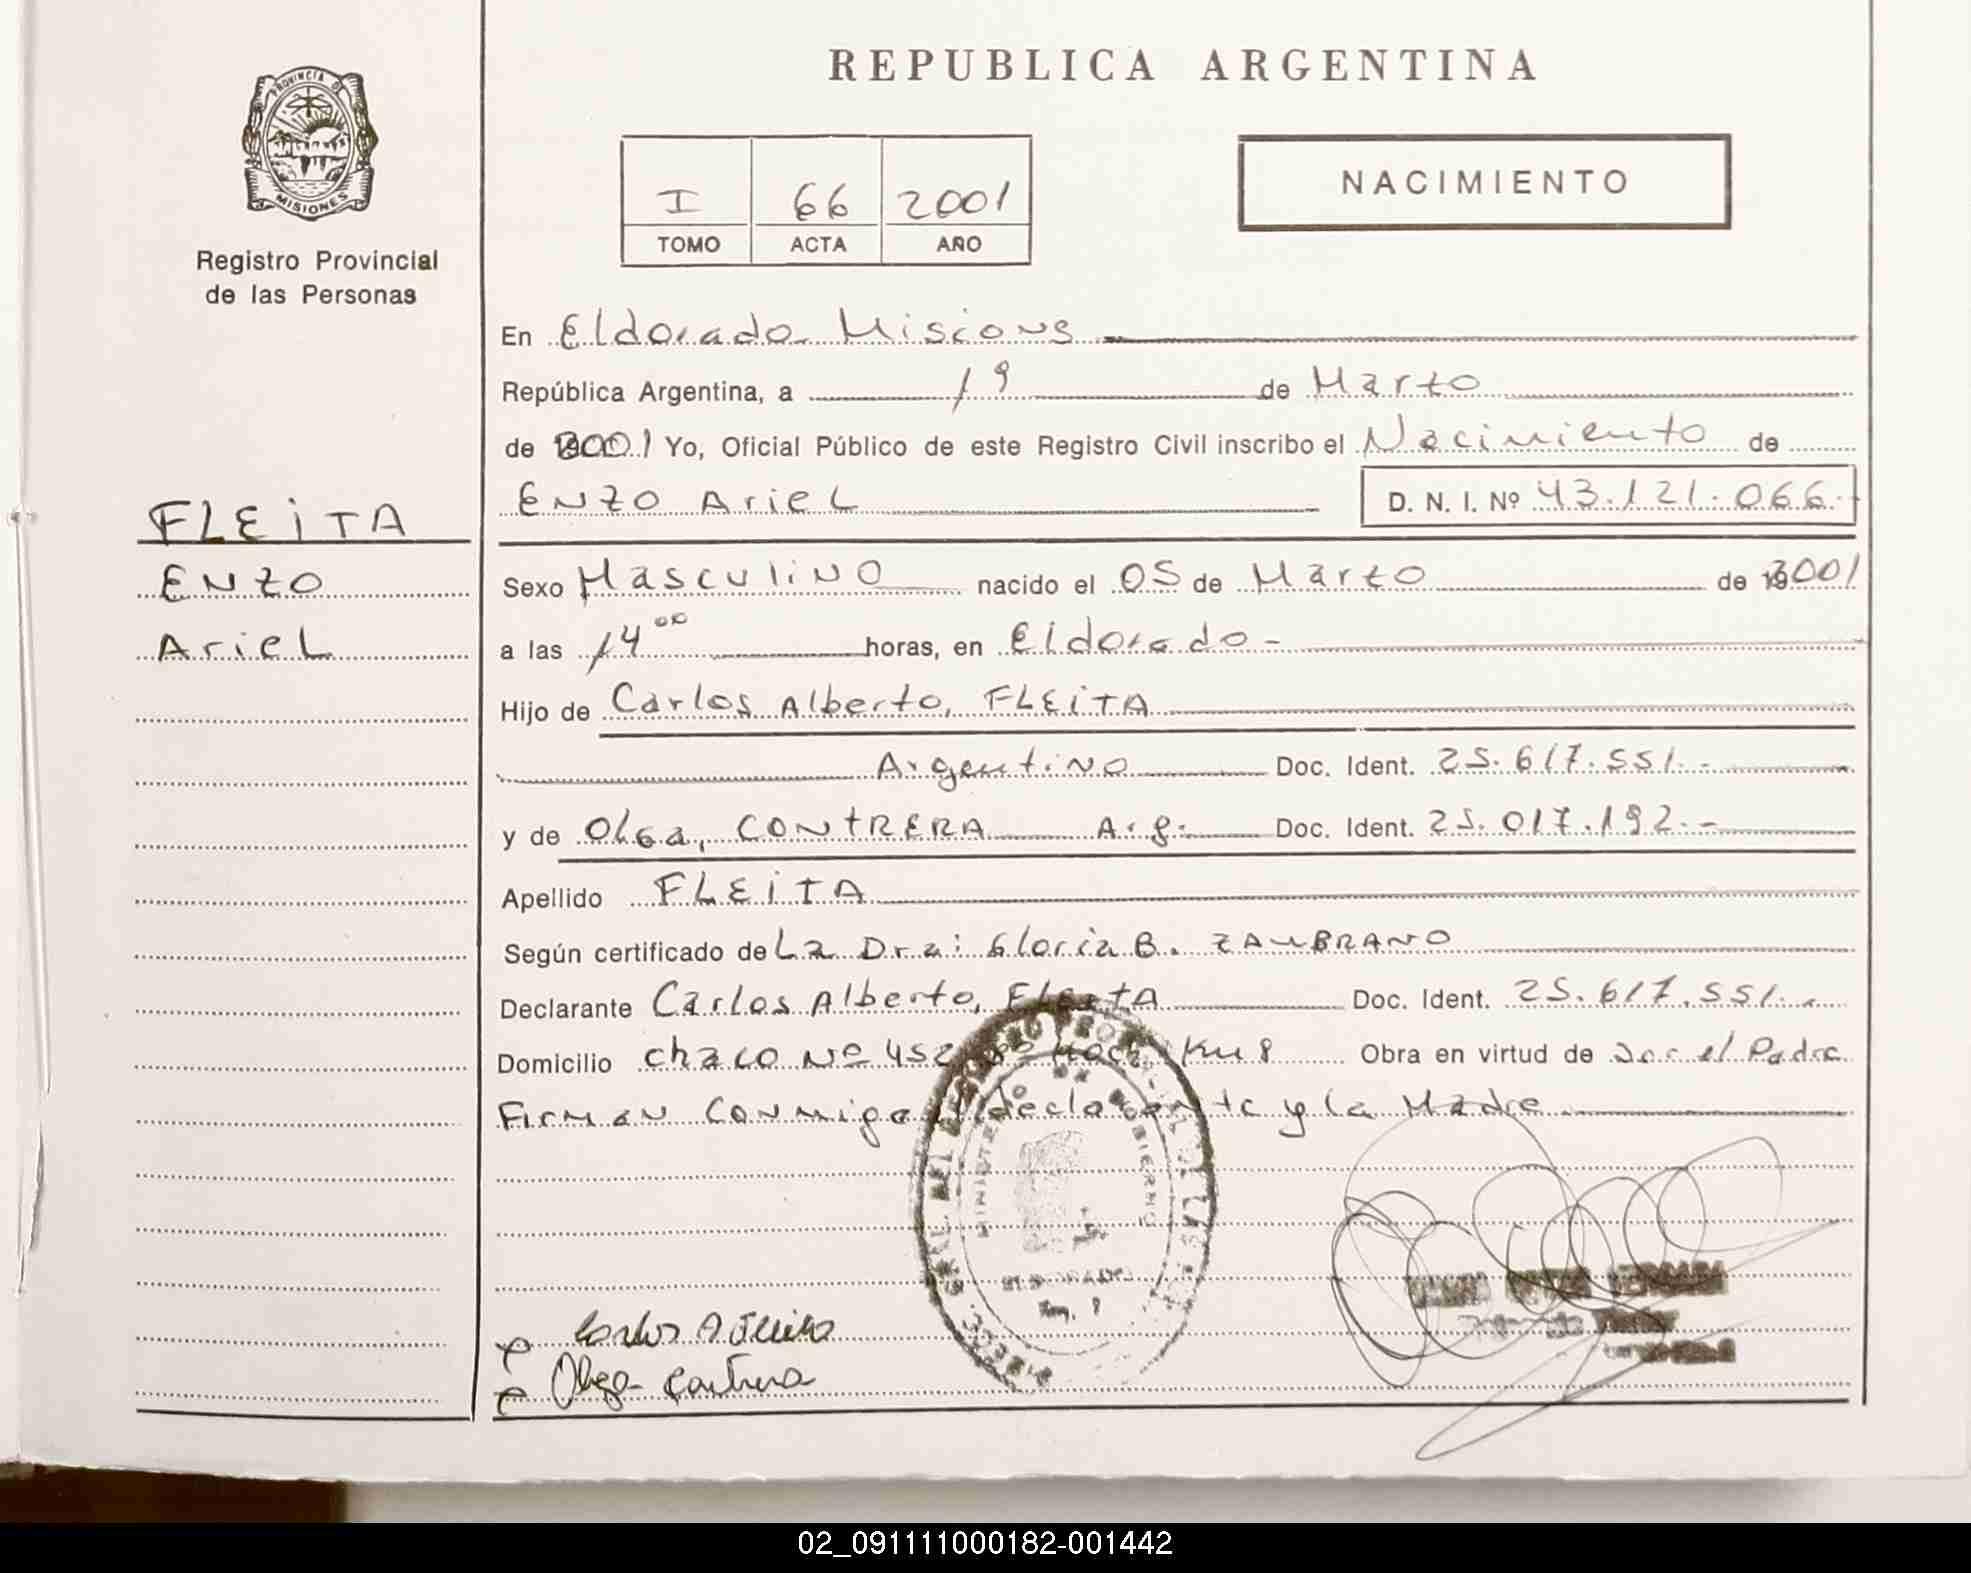 REPUBLICA ARGENTINA
PROVINCIA DE
MISIONES
Registro Provincial
de las Personas
I 66 2001
TOMO ACTA AÑO
NACIMIENTO
En Eldorado Misions
República Argentina, a 19 de Marzo
de 2001 Yo, Oficial Público de este Registro Civil inscribo el Nacimiento de
ENZO Ariel D. N. I. Nº 43.121.066.-
FLEiTA
ENZO
Ariel
Sexo Masculino nacido el 05 de Marzo de 2001
a las 14 00 horas, en Eldorado -
Hijo de Carlos Alberto, FLEiTA
Argentino Doc. Ident. 25.617.551.-
y de Olga, CONTRERA Arg. Doc. Ident. 25.017.192.-
Apellido FLEiTA
Según certificado de La Dra: Gloria B. ZAMBRANO
Declarante Carlos Alberto, FleitA Doc. Ident. 25.617.551.-
Domicilio Chaco Nº 452 Km 8 Obra en virtud de Ser el Padre
Firman Conmigo el declarante y la Madre
MINISTERIO DE GOBIERNO
ELDORADO
Km. 8
Carlos A Fleita
Olga Contrera
02_091111000182-001442